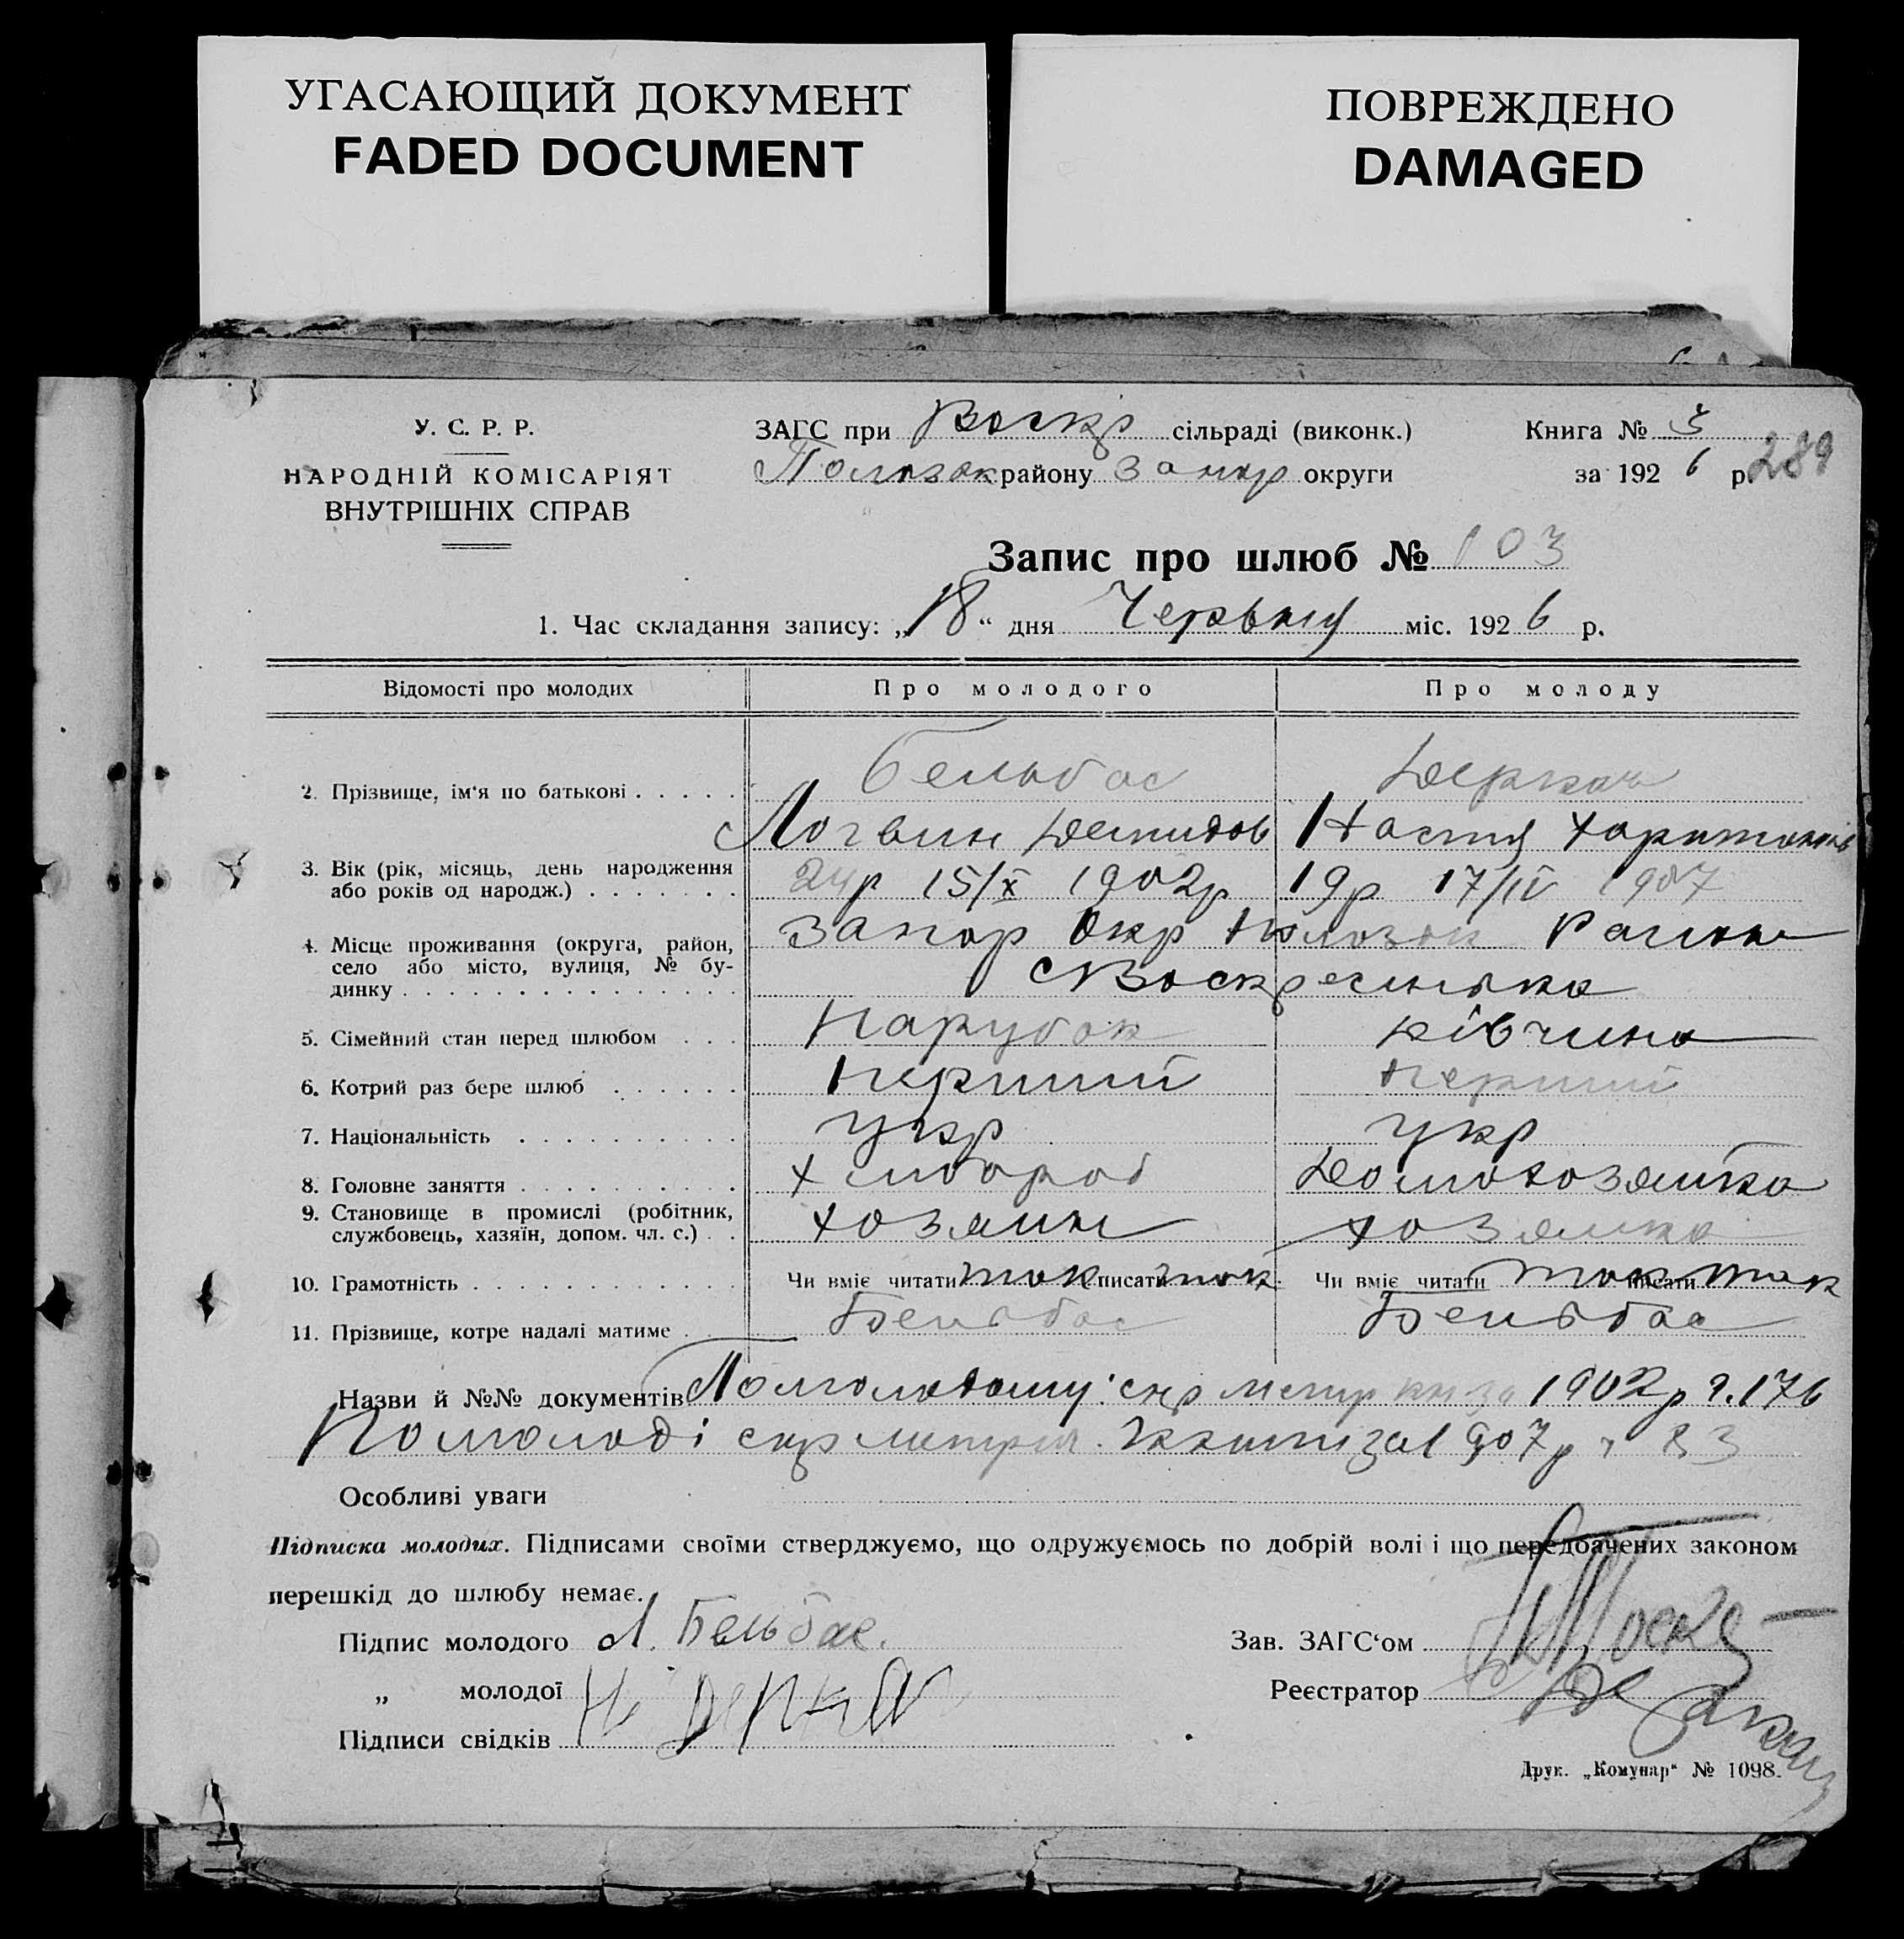 УГАСАЮЩИЙ ДОКУМЕНТ
FADED DOCUMENT
ПОВРЕЖДЕНО
DAMAGED
У. С. Р. Р.
НАРОДНІЙ КОМІСАРІЯТ
ВНУТРІШНІХ СПРАВ
ЗАГС при Воскр сільраді (виконк.)
району Запор округи
Книга № 3
за 1926 р. 289
Запис про шлюб № 103
1. Час складання запису: „18“ дня Червня міс. 1926 р.
Відомості про молодих
Про молодого
Про молоду
2. Прізвище, ім‘я по батькові
Бельбас
Логвин Демидов
Деркач
Настя Харитонів
3. Вік (рік, місяць, день народження
або років од народж.)
24р 15/X 1902р
19р 17/IV 1907
4. Місце проживання (округа, район,
село або місто, вулиця, № бу-
динку
Запор Окр Пологов Район
с Воскресенька
5. Сімейний стан перед шлюбом
Парубок
Дівчина
6. Котрий раз бере шлюб
Перший
Перший
7. Національність
Укр
Укр
8. Головне заняття
Хлібороб
Домохозяйка
9. Становище в промислі (робітник,
службовець, хазяїн, допом. чл. с.)
хозяин
хозяйка
10. Грамотність
Чи вміє читати так писати так
Чи вміє читати так писати так
11. Прізвище, котре надалі матиме
Бельбас
Бельбас
Назви й №№ документів По молодому: метр за 1902 р 176
По молоді за 1907 р 83
Особливі уваги
Підписка молодих. Підписами своїми стверджуємо, що одружуємось по добрій волі і що передбачених законом
перешкід до шлюбу немає.
Підпис молодого Л. Бельбас.
„ молодої Н Деркач
Підписи свідків
Зав. ЗАГС‘ом
Реєстратор
Друк. „Комунар“ № 1098.